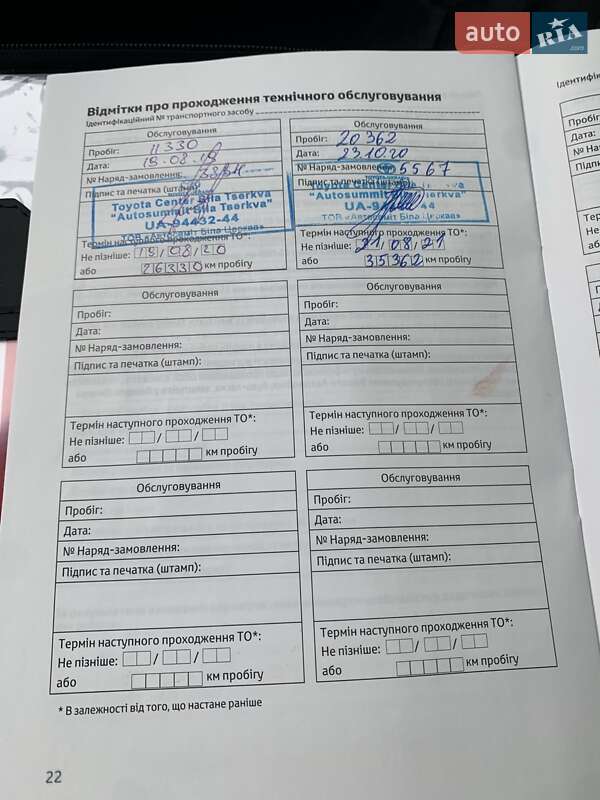 auto RIA .com
Відмітки про проходження технічного обслуговування
Ідентифікаційний № транспортного засобу
Обслуговування
Пробіг: 11330
Дата: 19.08.19
№ Наряд-замовлення:
Підпис та печатка (штамп):
Toyota Center Bila Tserkva
"Autosummit Bila Tserkva"
UA-94432-44
ТОВ «Автосаміт Біла Церква»
Термін наступного проходження ТО*:
Не пізніше: 19/08/20
або 26330 км пробігу
Обслуговування
Пробіг: 20362
Дата: 231020
№ Наряд-замовлення: 5567
Підпис та печатка (штамп):
Toyota Center
"Autosummit Bila Tserkva"
ТОВ «Автосаміт Біла Церква»
Термін наступного проходження ТО*:
Не пізніше: 21/08/21
або 35362 км пробігу
Обслуговування
Пробіг:
Дата:
№ Наряд-замовлення:
Підпис та печатка (штамп):
Термін наступного проходження ТО*:
Не пізніше: / /
або км пробігу
Обслуговування
Пробіг:
Дата:
№ Наряд-замовлення:
Підпис та печатка (штамп):
Термін наступного проходження ТО*:
Не пізніше: / /
або км пробігу
Обслуговування
Пробіг:
Дата:
№ Наряд-замовлення:
Підпис та печатка (штамп):
Термін наступного проходження ТО*:
Не пізніше: / /
або км пробігу
Обслуговування
Пробіг:
Дата:
№ Наряд-замовлення:
Підпис та печатка (штамп):
Термін наступного проходження ТО*:
Не пізніше: / /
або км пробігу
* В залежності від того, що настане раніше
22